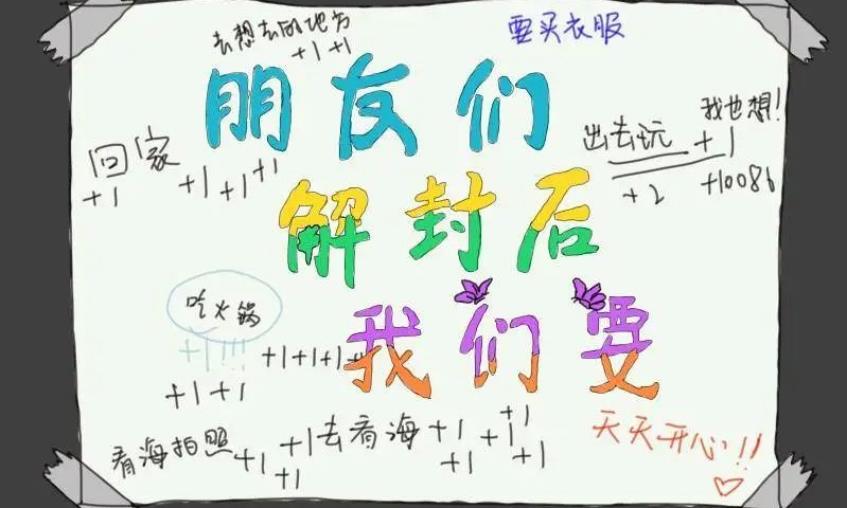 去想去的地方
+1 +1
要买衣服
朋友们
回家
+1
+1 +1 +1
出去玩 +1
我也想!
+2
+10086
解封后
吃火锅
+1!!!
+1+1+1+
+1+1
我们要
看海拍照
+1
+1
+1
去看海
+1 +1
+1
+1
+1
天天开心!!